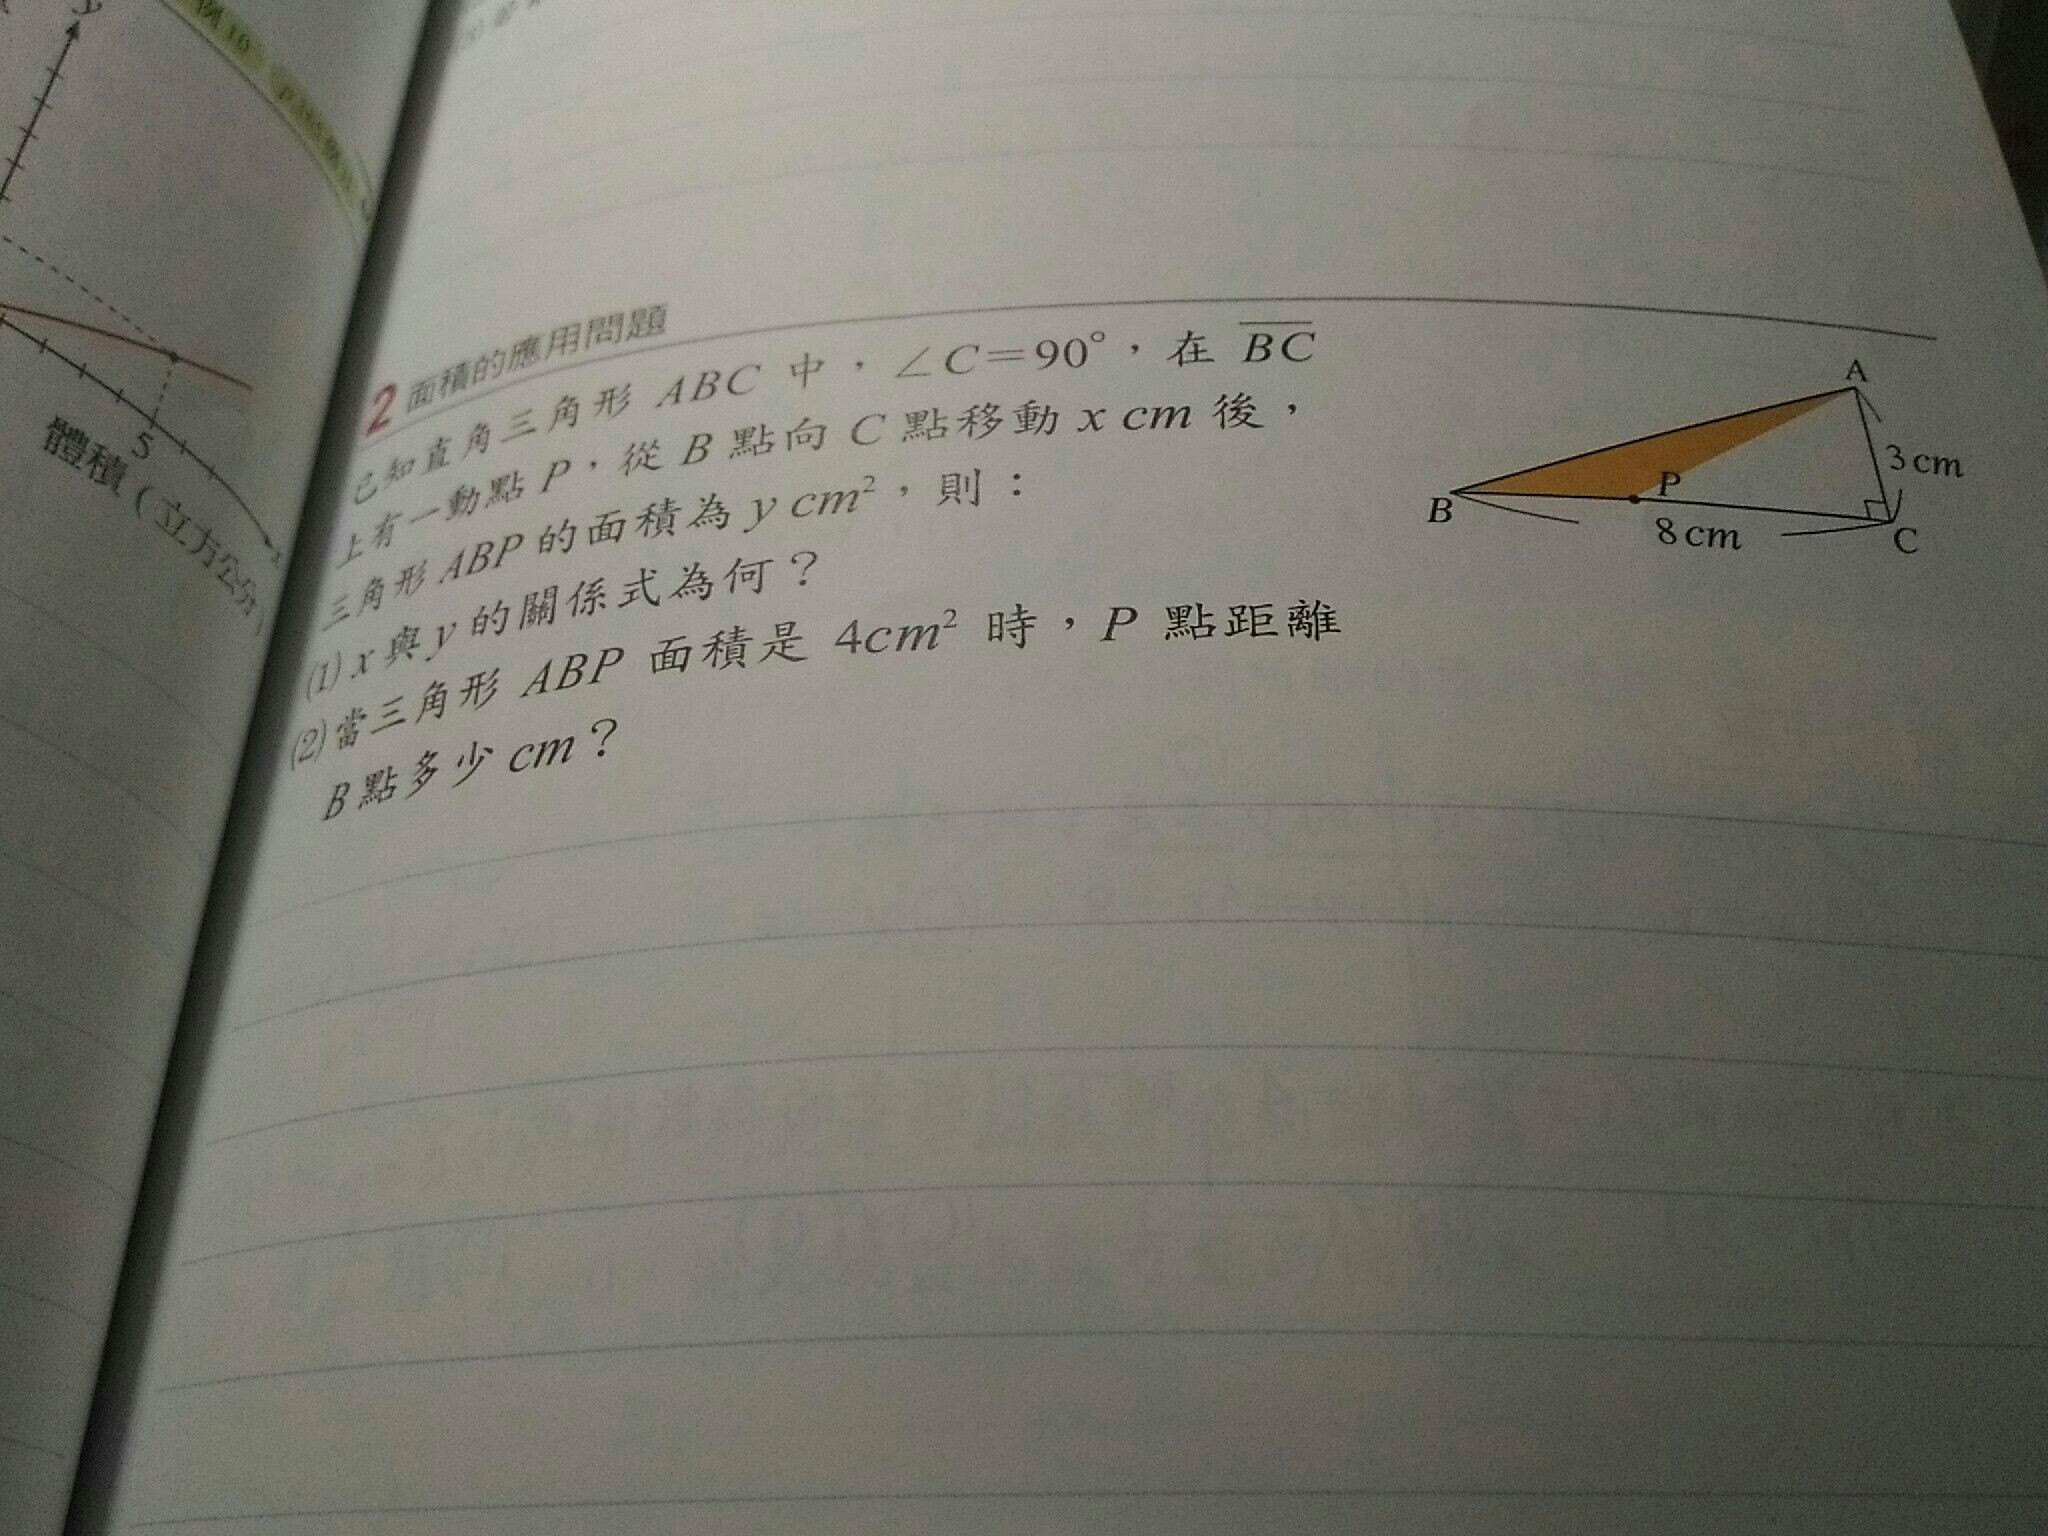 y
例10
5
體積（立方公分）
2 面積的應用問題
已知直角三角形 ABC 中，∠C=90°，在 BC
上有一動點 P，從 B 點向 C 點移動 x cm 後，
三角形 ABP 的面積為 y cm²，則：
(1) x 與 y 的關係式為何？
(2) 當三角形 ABP 面積是 4cm² 時，P 點距離
B 點多少 cm？
A
3 cm
P
B
8 cm
C